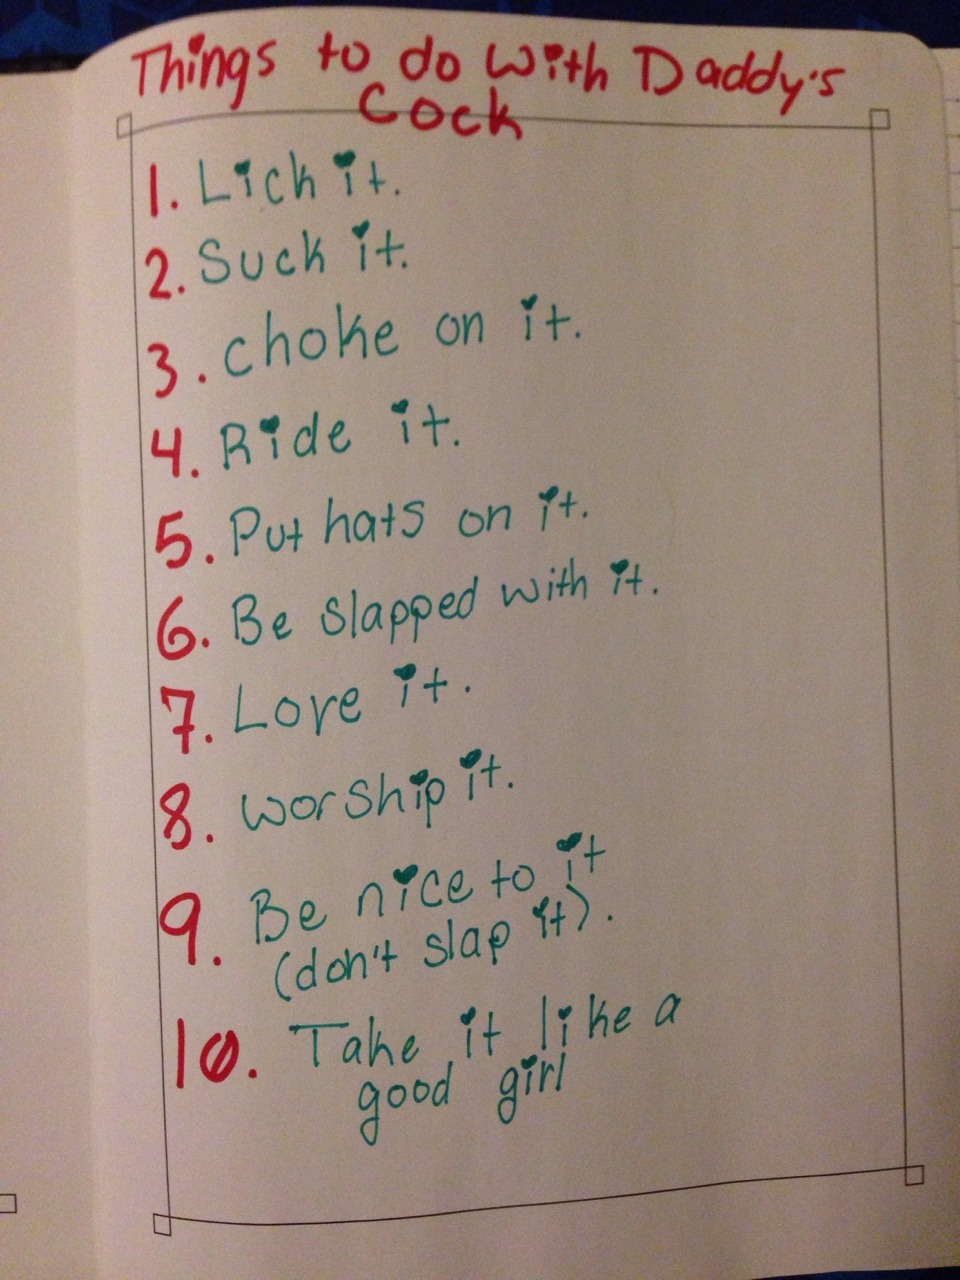 Things to do with Daddy's
Cock
1. Lick it.
2. Suck it.
3. choke on it.
4. Ride it.
5. Put hats on it.
6. Be slapped with it.
7. Love it.
8. worship it.
9. Be nice to it
(don't slap it).
10. Take it like a
good girl